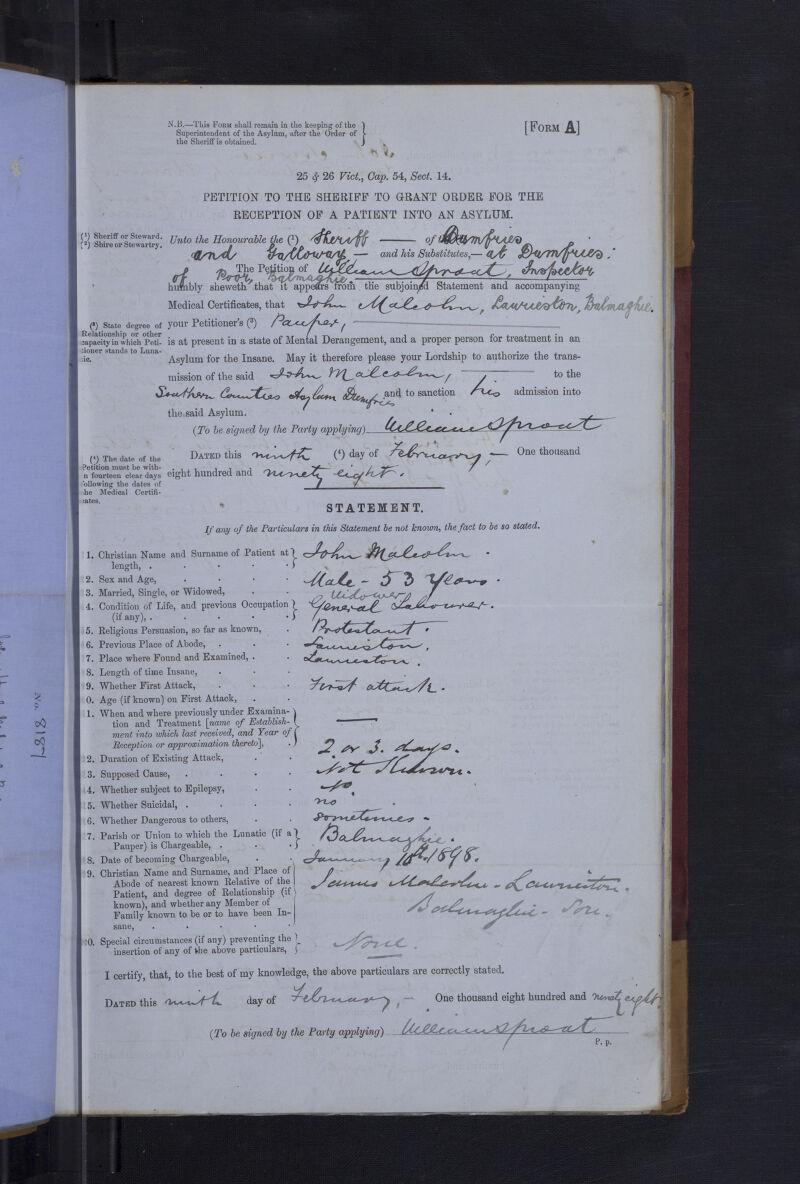 N.B.—This Form shall remain in the keeping of the
Superintendent of the Asylum, after the Order of
the Sheriff is obtained.
[Form A]
25 & 26 Vict., Cap. 54, Sect. 14.
PETITION TO THE SHERIFF TO GRANT ORDER FOR THE
RECEPTION OF A PATIENT INTO AN ASYLUM.
(¹) Sheriff or Steward.
(²) Shire or Stewartry.
Unto the Honourable the (¹) Sheriff — of Dumfries
and Galloway — and his Substitutes,— at Dumfries.
The Petition of William Sproat, Inspector
of Poor, Balmaghie
humbly sheweth that it appears from the subjoined Statement and accompanying
Medical Certificates, that John Malcolm, Laurieston, Balmaghie.
(³) State degree of
Relationship or other
capacity in which Peti-
tioner stands to Luna-
tic.
your Petitioner's (³) Pauper,
is at present in a state of Mental Derangement, and a proper person for treatment in an
Asylum for the Insane. May it therefore please your Lordship to authorize the trans-
mission of the said John Malcolm, — to the
Southern Counties Asylum Dumfries and to sanction his admission into
the said Asylum.
(To be signed by the Party applying) William Sproat
(⁴) The date of the
Petition must be with-
n fourteen clear days
following the dates of
he Medical Certifi-
cates.
Dated this ninth (⁴) day of February, — One thousand
eight hundred and ninety eight.
STATEMENT.
If any of the Particulars in this Statement be not known, the fact to be so stated.
1. Christian Name and Surname of Patient at length, . John Malcolm.
2. Sex and Age, Male - 53 Years.
3. Married, Single, or Widowed, Widower
4. Condition of Life, and previous Occupation (if any), . General Labourer.
5. Religious Persuasion, so far as known, Protestant.
6. Previous Place of Abode, Laurieston.
7. Place where Found and Examined, . Laurieston.
8. Length of time Insane,
9. Whether First Attack, First attack.
0. Age (if known) on First Attack,
1. When and where previously under Examina-
tion and Treatment [name of Establish-
ment into which last received, and Year of
Reception or approximation thereto], —
2. Duration of Existing Attack, 2 or 3. days.
3. Supposed Cause, Not Known.
4. Whether subject to Epilepsy, No.
5. Whether Suicidal, . no
6. Whether Dangerous to others, sometimes -
7. Parish or Union to which the Lunatic (if a Pauper) is Chargeable, . Balmaghie.
8. Date of becoming Chargeable, January 10th 1898.
9. Christian Name and Surname, and Place of
Abode of nearest known Relative of the
Patient, and degree of Relationship (if
known), and whether any Member of
Family known to be or to have been In-
sane,
James Malcolm - Laurieston.
Balmaghie - Son.
20. Special circumstances (if any) preventing the
insertion of any of the above particulars, None.
I certify, that, to the best of my knowledge, the above particulars are correctly stated.
Dated this ninth day of February, — One thousand eight hundred and ninety eight.
(To be signed by the Party applying) William Sproat
P. p.
No. 8187